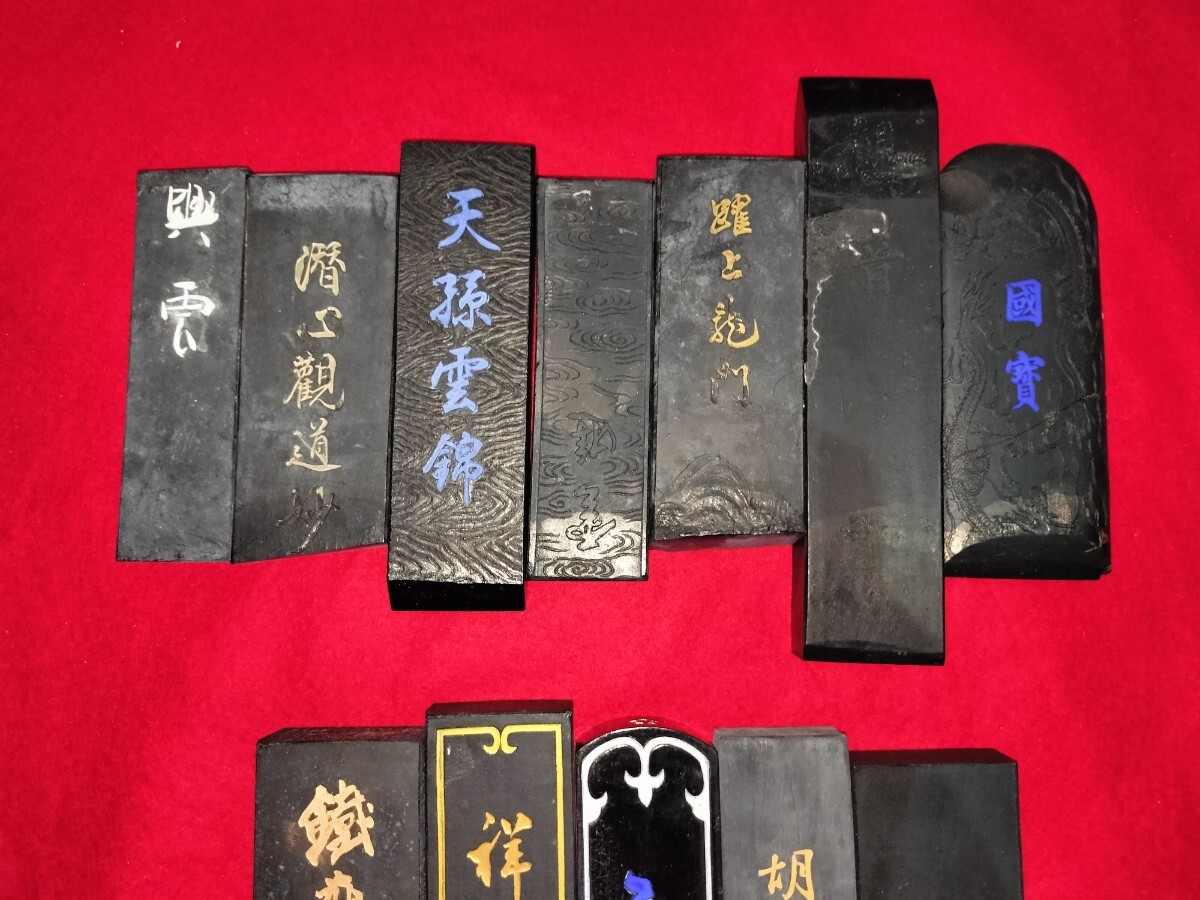 興雲
潛心觀道妙
天孫雲錦
躍上龍门
音
國寶
鐵
祥
胡